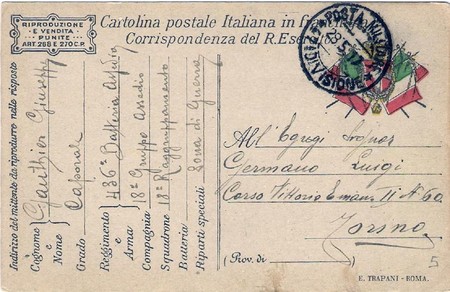 RIPRODUZIONE
E VENDITA
PUNITE
ART. 268 E 270 C.P.
Cartolina postale Italiana in fra
Corrispondenza del R. Eser
POSTA MILITARE
DIVISIONE
Indirizzo del mittente da riprodurre nelle risposte
Cognome e Nome Gauthier Giuseppe
Grado Caporale
Reggimento e Arma 436a Batteria Assedio
Compagnia 18° Gruppo Assedio
Squadrone 18° Raggruppamento
Batteria
Riparti speciali Zona di Guerra
All' Egregi Signor
Germano Luigi
Corso Vittorio Eman. II N° 60
Torino
(Prov. di )
5
E. TRAPANI - ROMA.